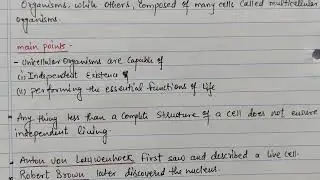 Organisms. while others, composed of many cells called multicellular
organisms.
main points -
- Unicellular Organisms are capable of
(i) Independent Existence of
(ii) performing the essential functions of life
- Any thing less than a complete structure of a cell does not ensure
independent living.
- Anton von Leeuwenhoek first saw and described a live cell.
- Robert Brown later discovered the nucleus.